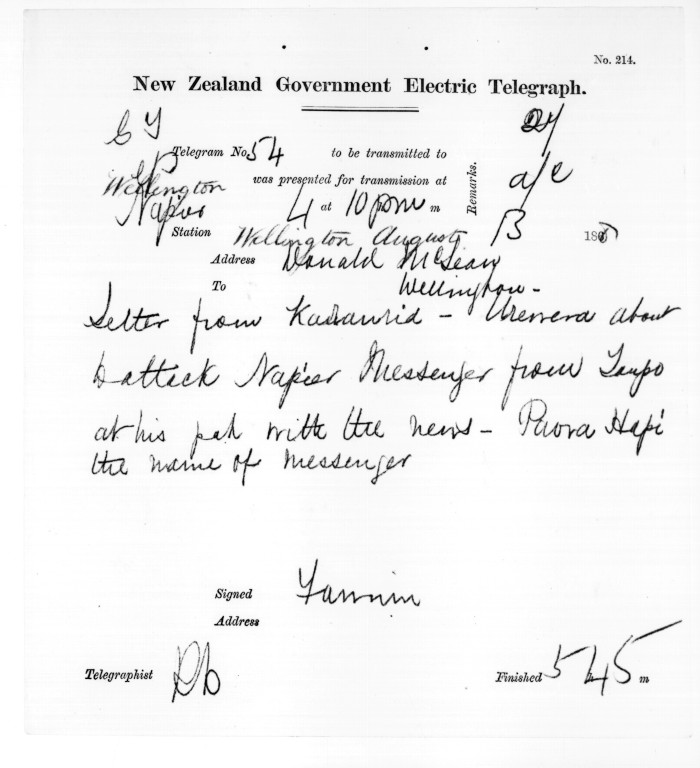 No. 214.
New Zealand Government Electric Telegraph.
Telegram No. 54 to be transmitted to
Wellington was presented for transmission at
Napier 4 at 10 pm m
Remarks. a/c
Station Wellington August 13 186
Address Donald McLean
To Wellington -
Letter from - Urewera about
to attack Napier Messenger from Taupo
at his pah with the news - Paora Hapi
the name of Messenger
Signed
Address
Telegraphist
Finished 5 45 m